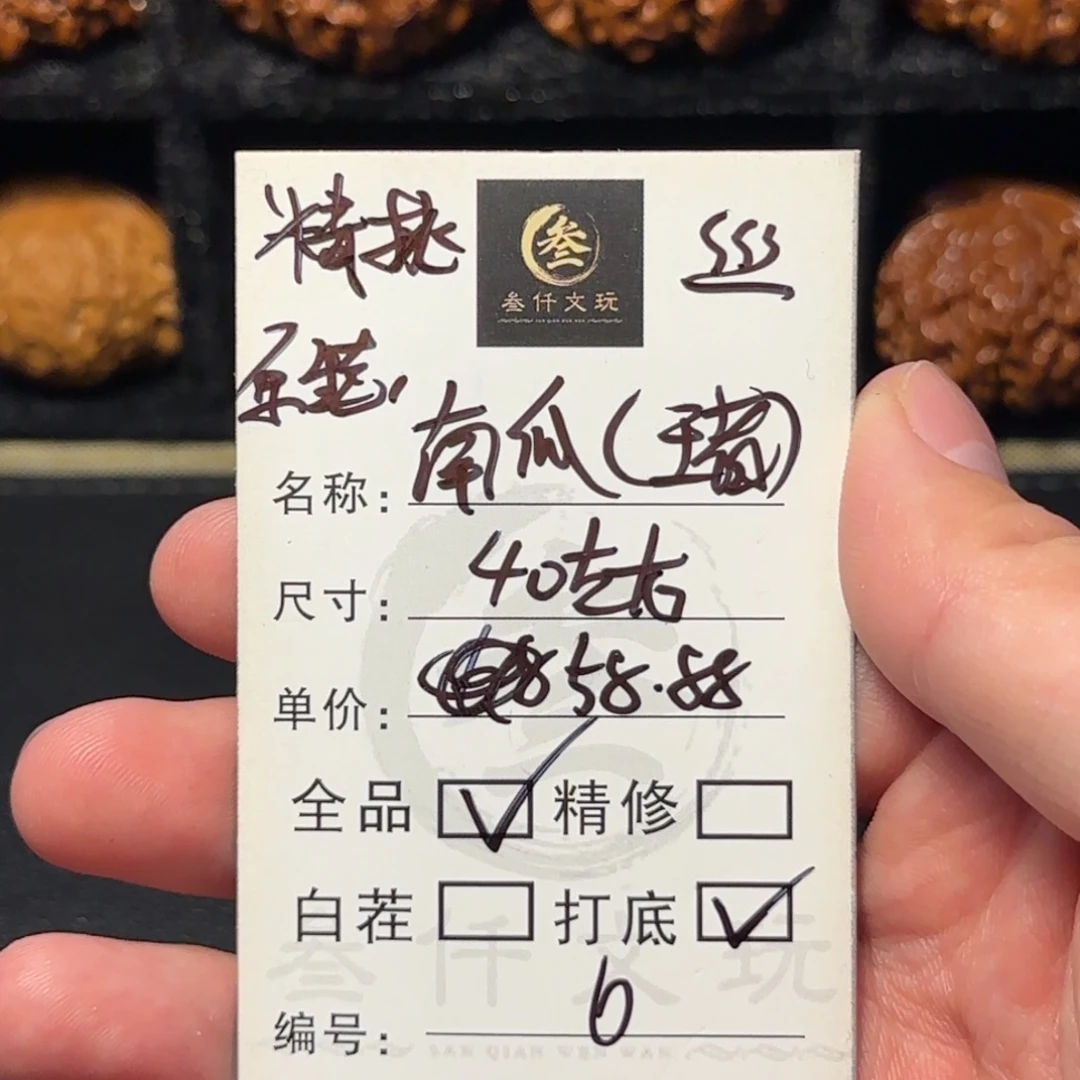 精挑
叁
叁仟文玩
SAN QIAN WEN WAN
丝
名称: 南瓜(
尺寸: 40左右
单价: 858.88
全品 ✓ 精修
白茬 打底 ✓
叁仟文玩
编号: 6
SAN QIAN WEN WAN